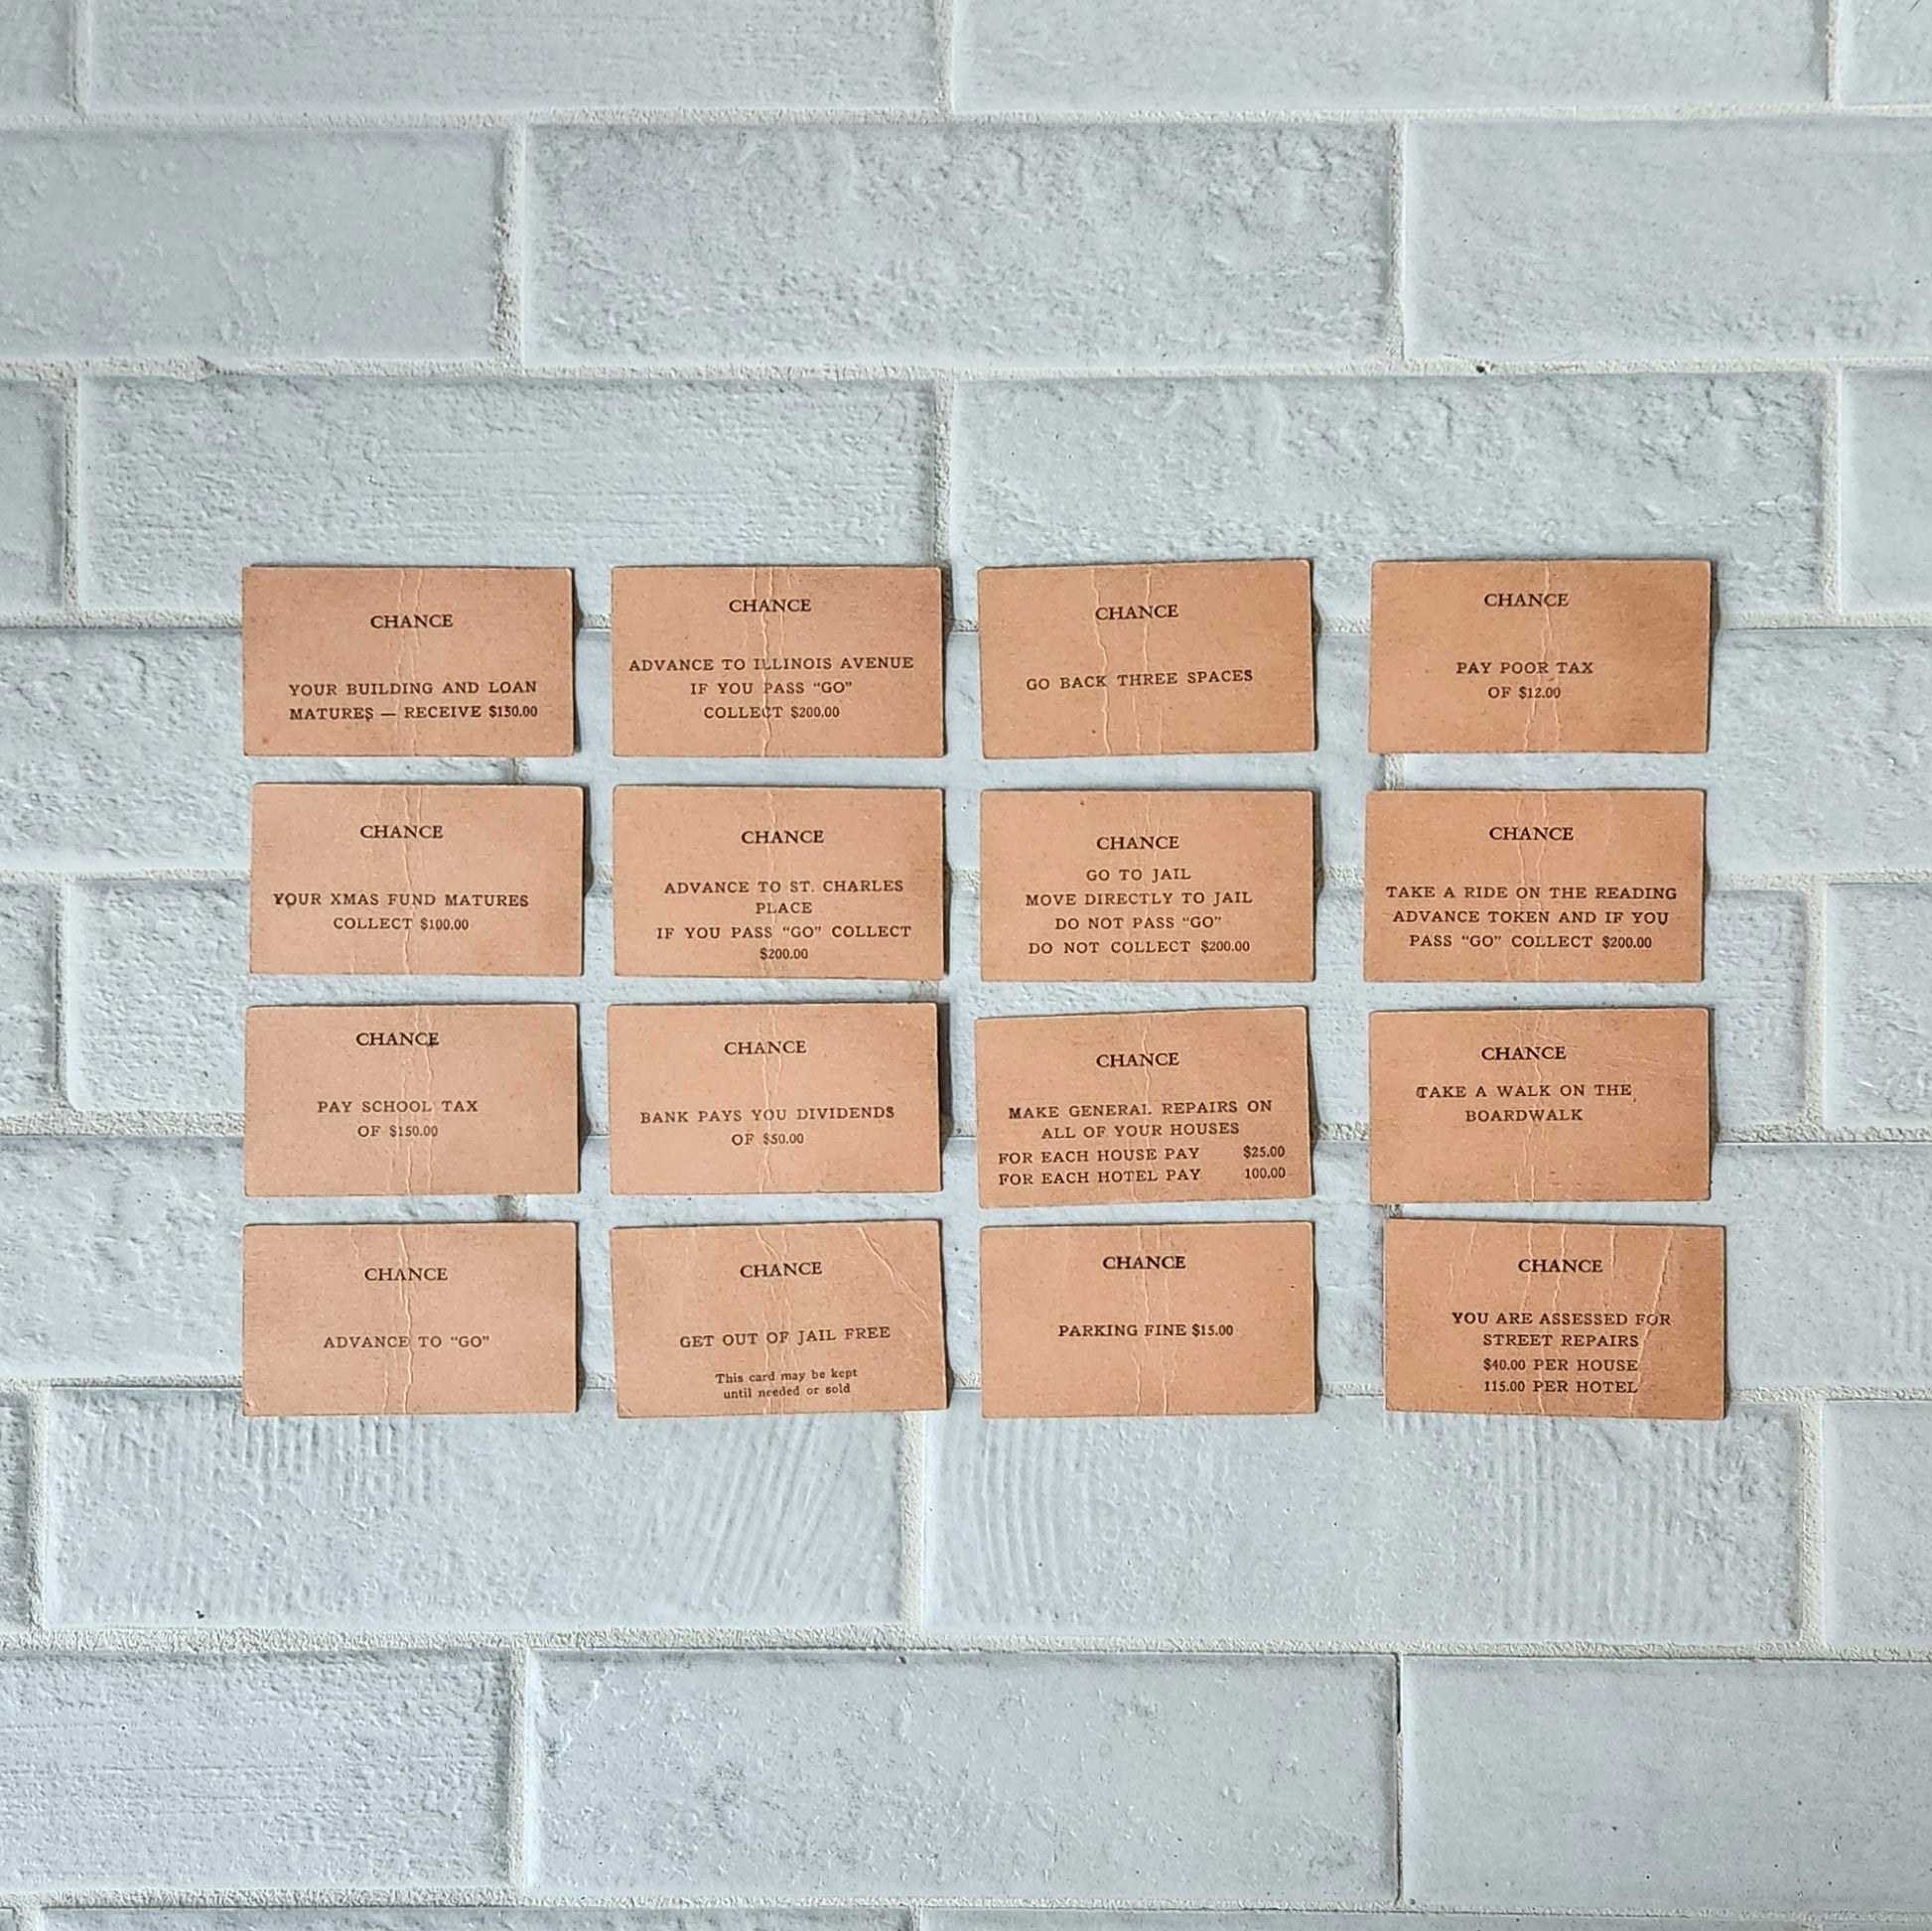 CHANCE
YOUR BUILDING AND LOAN
MATURES — RECEIVE $150.00
CHANCE
ADVANCE TO ILLINOIS AVENUE
IF YOU PASS “GO”
COLLECT $200.00
CHANCE
GO BACK THREE SPACES
CHANCE
PAY POOR TAX
OF $12.00
CHANCE
YOUR XMAS FUND MATURES
COLLECT $100.00
CHANCE
ADVANCE TO ST. CHARLES
PLACE
IF YOU PASS “GO” COLLECT
$200.00
CHANCE
GO TO JAIL
MOVE DIRECTLY TO JAIL
DO NOT PASS “GO”
DO NOT COLLECT $200.00
CHANCE
TAKE A RIDE ON THE READING
ADVANCE TOKEN AND IF YOU
PASS “GO” COLLECT $200.00
CHANCE
PAY SCHOOL TAX
OF $150.00
CHANCE
BANK PAYS YOU DIVIDENDS
OF $50.00
CHANCE
MAKE GENERAL REPAIRS ON
ALL OF YOUR HOUSES
FOR EACH HOUSE PAY $25.00
FOR EACH HOTEL PAY 100.00
CHANCE
TAKE A WALK ON THE
BOARDWALK
CHANCE
ADVANCE TO “GO”
CHANCE
GET OUT OF JAIL FREE
This card may be kept
until needed or sold
CHANCE
PARKING FINE $15.00
CHANCE
YOU ARE ASSESSED FOR
STREET REPAIRS
$40.00 PER HOUSE
115.00 PER HOTEL